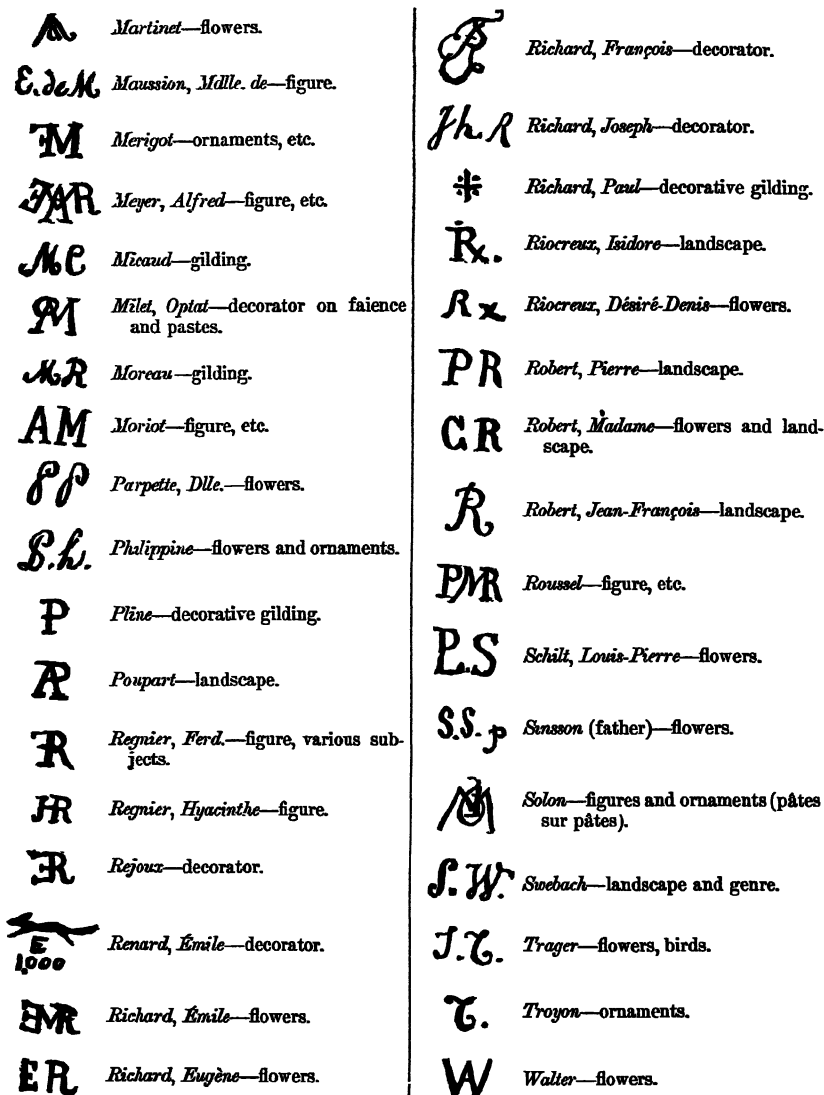 Martinet—flowers.
E. de M. Maussion, Mdlle. de—figure.
Merigot—ornaments, etc.
Meyer, Alfred—figure, etc.
MC Micaud—gilding.
M Milet, Optat—decorator on faience
and pastes.
MR Moreau—gilding.
AM Moriot—figure, etc.
PP Parpette, Dlle.—flowers.
P.h. Philippine—flowers and ornaments.
P Pline—decorative gilding.
AP Poupart—landscape.
FR Regnier, Ferd.—figure, various sub-
jects.
HR Regnier, Hyacinthe—figure.
ER Rejoux—decorator.
Renard, Émile—decorator.
E
1,000
EMR Richard, Émile—flowers.
ER Richard, Eugène—flowers.
Richard, François—decorator.
Jh. R Richard, Joseph—decorator.
Richard, Paul—decorative gilding.
Rx. Riocreux, Isidore—landscape.
Rx Riocreux, Désiré-Denis—flowers.
PR Robert, Pierre—landscape.
CR Robert, Madame—flowers and land-
scape.
R Robert, Jean-François—landscape.
PMR Roussel—figure, etc.
P.S Schilt, Louis-Pierre—flowers.
S.S. p Sinsson (father)—flowers.
Solon—figures and ornaments (pâtes
sur pâtes).
S. W. Swebach—landscape and genre.
J. T. Trager—flowers, birds.
T. Troyon—ornaments.
W Walter—flowers.